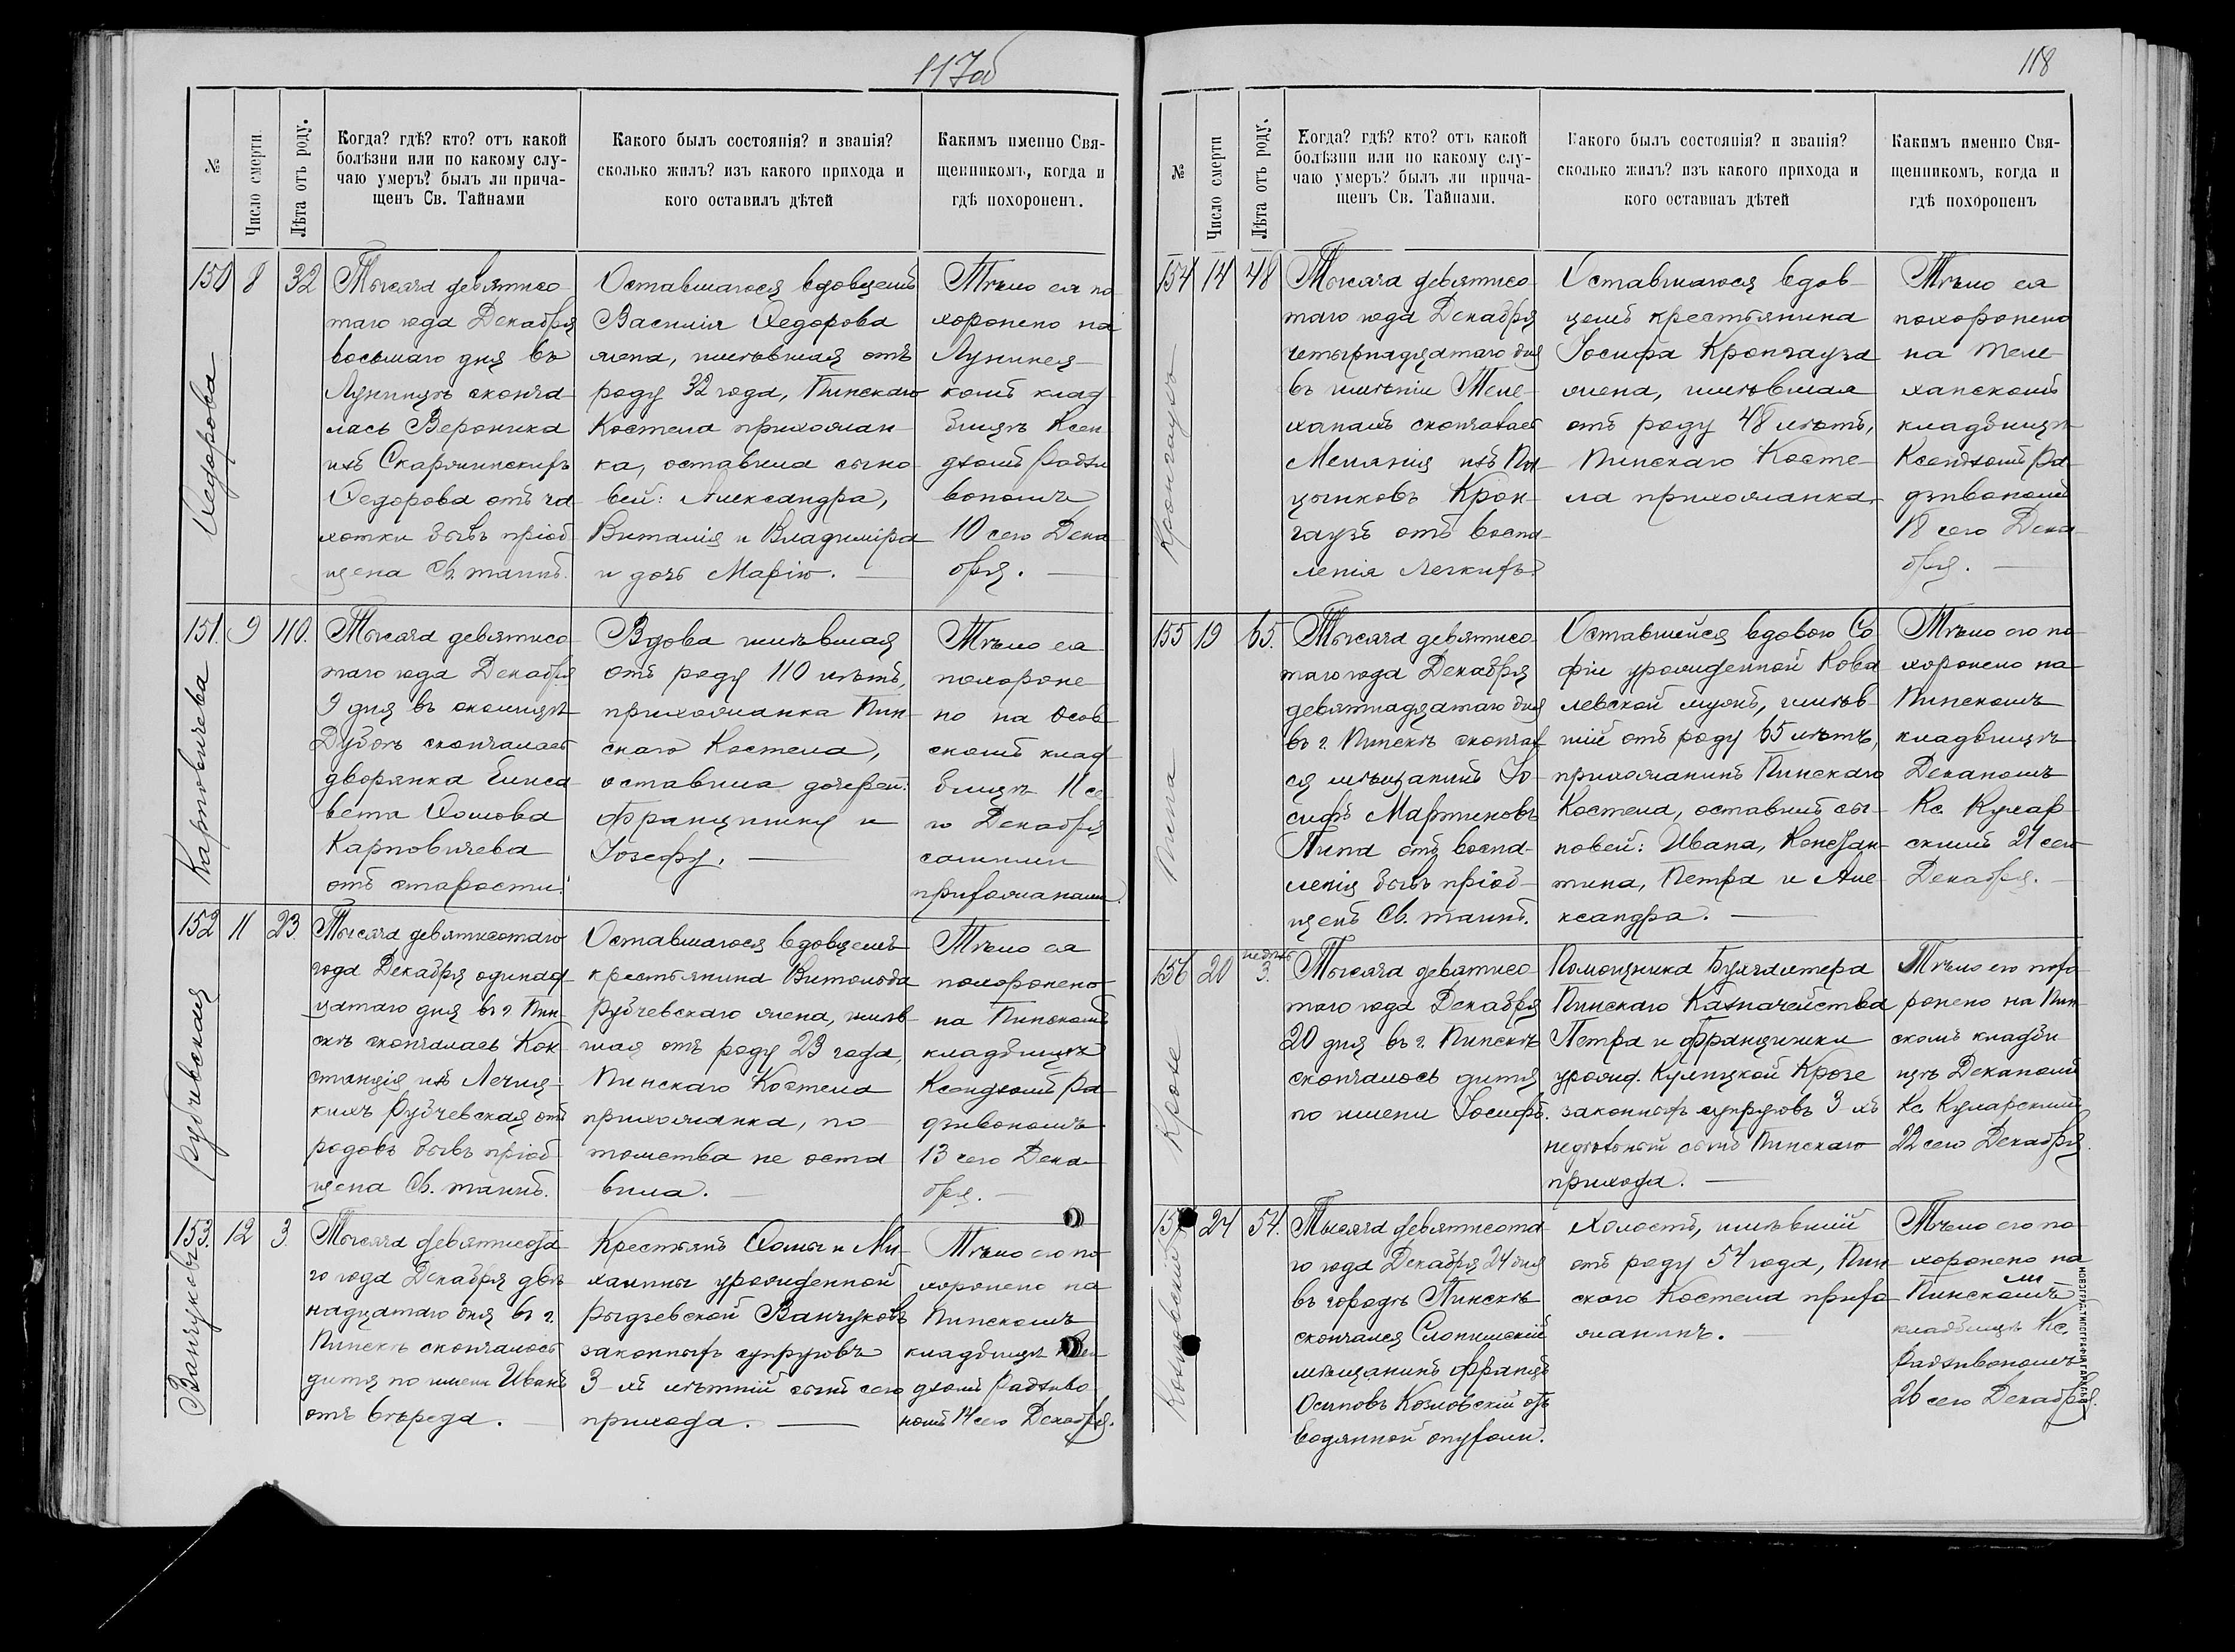 117об
№
Число смерти
Лѣта отъ роду.
Когда? гдѣ? кто? отъ какой
болѣзни или по какому слу-
чаю умеръ? былъ ли прича-
щенъ Св. Тайнами
Какого былъ состоянія? и званія?
сколько жилъ? изъ какого прихода и
кого оставилъ дѣтей
Какимъ именно Свя-
щенникомъ, когда и
гдѣ похороненъ.
150
8
32
Ѳедорова
Тысяча девятисо-
таго года Декабря
восьмаго дня въ
Лунинцѣ сконча-
лась Вероника
изъ Скаржинскихъ
Ѳедорова отъ ча-
хотки бывъ пріоб-
щена Св. таинъ.
Оставшагося вдовцемъ
Василія Ѳедорова
жена, имѣвшая отъ
роду 32 года, Пинскаго
Костела прихожан-
ка, оставила сыно-
вей: Александра,
Виталія и Владиміра
и дочь Марію.
Тѣло ея по-
хоронено на
Лунинец-
комъ клад-
бищѣ Ксен-
дзомъ Радзи-
вономъ
10 сего Дека-
бря.
151.
9
110.
Карповичева
Тысяча девятисо-
таго года Декабря
9 дня въ околицѣ
Дубоѣ скончалась
дворянка Елиса-
вета Ѳомова
Карповичева
отъ старости.
Вдова имѣвшая
отъ роду 110 лѣтъ,
прихожанка Пин-
скаго Костела,
оставила дочерей:
Францишку и
Іозефу.
Тѣло ея
похороне-
но на Осов-
скомъ клад-
бищѣ 11 се-
го Декабря
самими
прихожанами.
152
11
23.
Рубчевская
Тысяча девятисотаго
года Декабря одинад-
цатаго дня въ г. Пин-
скѣ скончалась Кон-
станція изъ Лечиц-
кихъ Рубчевская отъ
родовъ бывъ пріоб-
щена Св. таинъ.
Оставшагося вдовцемъ
крестьянина Витольда
Рубчевскаго жена, имѣв-
шая отъ роду 23 года,
Пинскаго Костела
прихожанка, по-
томства не оста-
вила.
Тѣло ея
похоронено
на Пинскомъ
кладбищѣ
Ксендзомъ Ра-
дзивономъ
13 сего Дека-
бря.
153.
12
3.
Ванчуковъ
Тысяча девятисота-
го года Декабря двѣ-
надцатаго дня въ г.
Пинскѣ скончалось
дитя по имени Иванъ
отъ вереда.
Крестьянъ Ѳомы и Ми-
халины урожденной
Рыдзевской Ванчуковъ
законныхъ супруговъ
3-хъ лѣтній сынъ сего
прихода.
Тѣло его по-
хоронено на
Пинскомъ
кладбищѣ Ксен-
дзомъ Радзиво-
номъ 14 сего Декабря.
118
№
Число смерти
Лѣта отъ роду.
Когда? гдѣ? кто? отъ какой
болѣзни или по какому слу-
чаю умеръ? былъ ли прича-
щенъ Св. Тайнами.
Какого былъ состоянія? и званія?
сколько жилъ? изъ какого прихода и
кого оставилъ дѣтей
Какимъ именно Свя-
щенникомъ, когда и
гдѣ похороненъ
154
14
48
Кронгаузъ
Тысяча девятисо-
таго года Декабря
четырнадцатаго дня
въ имѣніи Теле-
ханахъ скончалась
Меланія изъ
Крон-
гаузъ отъ воспа-
ленія легкихъ.
Оставшагося вдов-
цемъ крестьянина
Іосифа Кронгауза
жена, имѣвшая
отъ роду 48 лѣтъ,
Пинскаго Косте-
ла прихожанка.
Тѣло ея
похоронено
на Теле-
ханскомъ
кладбищѣ
Ксендзомъ Ра-
дзивономъ
18 сего Дека-
бря.
155
19
65.
Липа
Тысяча девятисо-
таго года Декабря
девятнадцатаго дня
въ г. Пинскѣ скончал-
ся мѣщанинъ Іо-
сифъ Мартиновъ
Липа отъ воспа-
ленія бывъ пріоб-
щенъ Св. таинъ.
Оставшейся вдовою Со-
фіи урожденной Кова-
левской мужъ, имѣв-
шій отъ роду 65 лѣтъ,
прихожанинъ Пинскаго
Костела, оставилъ сы-
новей: Ивана, Констан-
тина, Петра и Але-
ксандра.
Тѣло его по-
хоронено на
Пинскомъ
кладбищѣ
Деканомъ
Кс. Кухар-
скимъ 21 сего
Декабря.
156
20
недѣль
3.
Крозе
Тысяча девятисо-
таго года Декабря
20 дня въ г. Пинскѣ
скончалось дитя
по имени Іосифъ.
Помощника Бухгалтера
Пинскаго Казначейства
Петра и Францишки
урожд. Кульпицкой Крозе
законныхъ супруговъ 3-хъ
недѣльный сынъ Пинскаго
прихода.
Тѣло его похо-
ронено на Пин-
скомъ кладби-
щѣ Деканомъ
Кс. Кухарскимъ
22 сего Декабря.
157
24
54.
Козловскій
Тысяча девятисота-
го года Декабря 24 дня
въ городѣ Пинскѣ
скончался Слонимскій
мѣщанинъ Францъ
Осиповъ Козловскій отъ
водянной опухоли.
Холостъ, имѣвшій
отъ роду 54 года, Пин-
скаго Костела прихо-
жанинъ.
Тѣло его по-
хоронено на
Пинскомъ
кладбищѣ Кс.
Радзивономъ
26 сего Декабря.